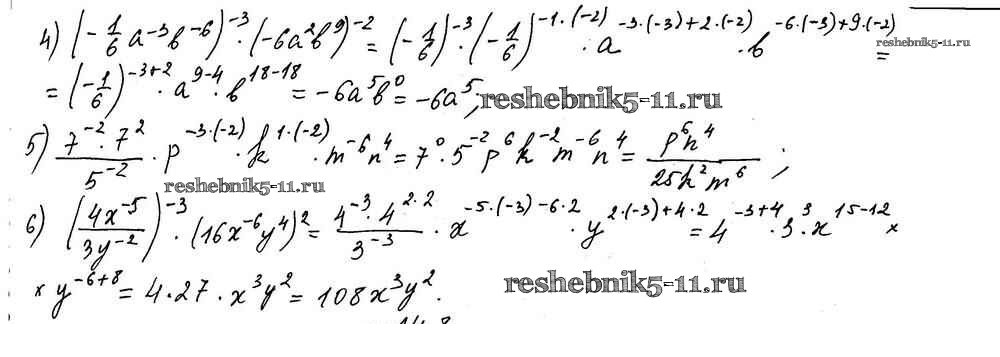 4) (-1/6 a⁻³b⁻⁶)⁻³·(-6a²b⁹)⁻² = (-1/6)⁻³·(-1/6)^(-1·(-2))·a^(-3·(-3)+2·(-2))·b^(-6·(-3)+9·(-2)) =
reshebnik5-11.ru
= (-1/6)^(-3+2)·a^(9-4)·b^(18-18) = -6a⁵b⁰ = -6a⁵;
reshebnik5-11.ru
5) (7⁻²·7²)/5⁻²·p^(-3·(-2))·k^(1·(-2))·m⁻⁶n⁴ = 7⁰·5⁻²p⁶k⁻²m⁻⁶n⁴ = p⁶n⁴/(25k²m⁶);
reshebnik5-11.ru
6) (4x⁻⁵/3y⁻²)⁻³·(16x⁻⁶y⁴)² = (4⁻³·4^(2·2))/3⁻³·x^(-5·(-3)-6·2)·y^(2·(-3)+4·2) = 4^(-3+4)·3³·x^(15-12)×
×y^(-6+8) = 4·27·x³y² = 108x³y².
reshebnik5-11.ru